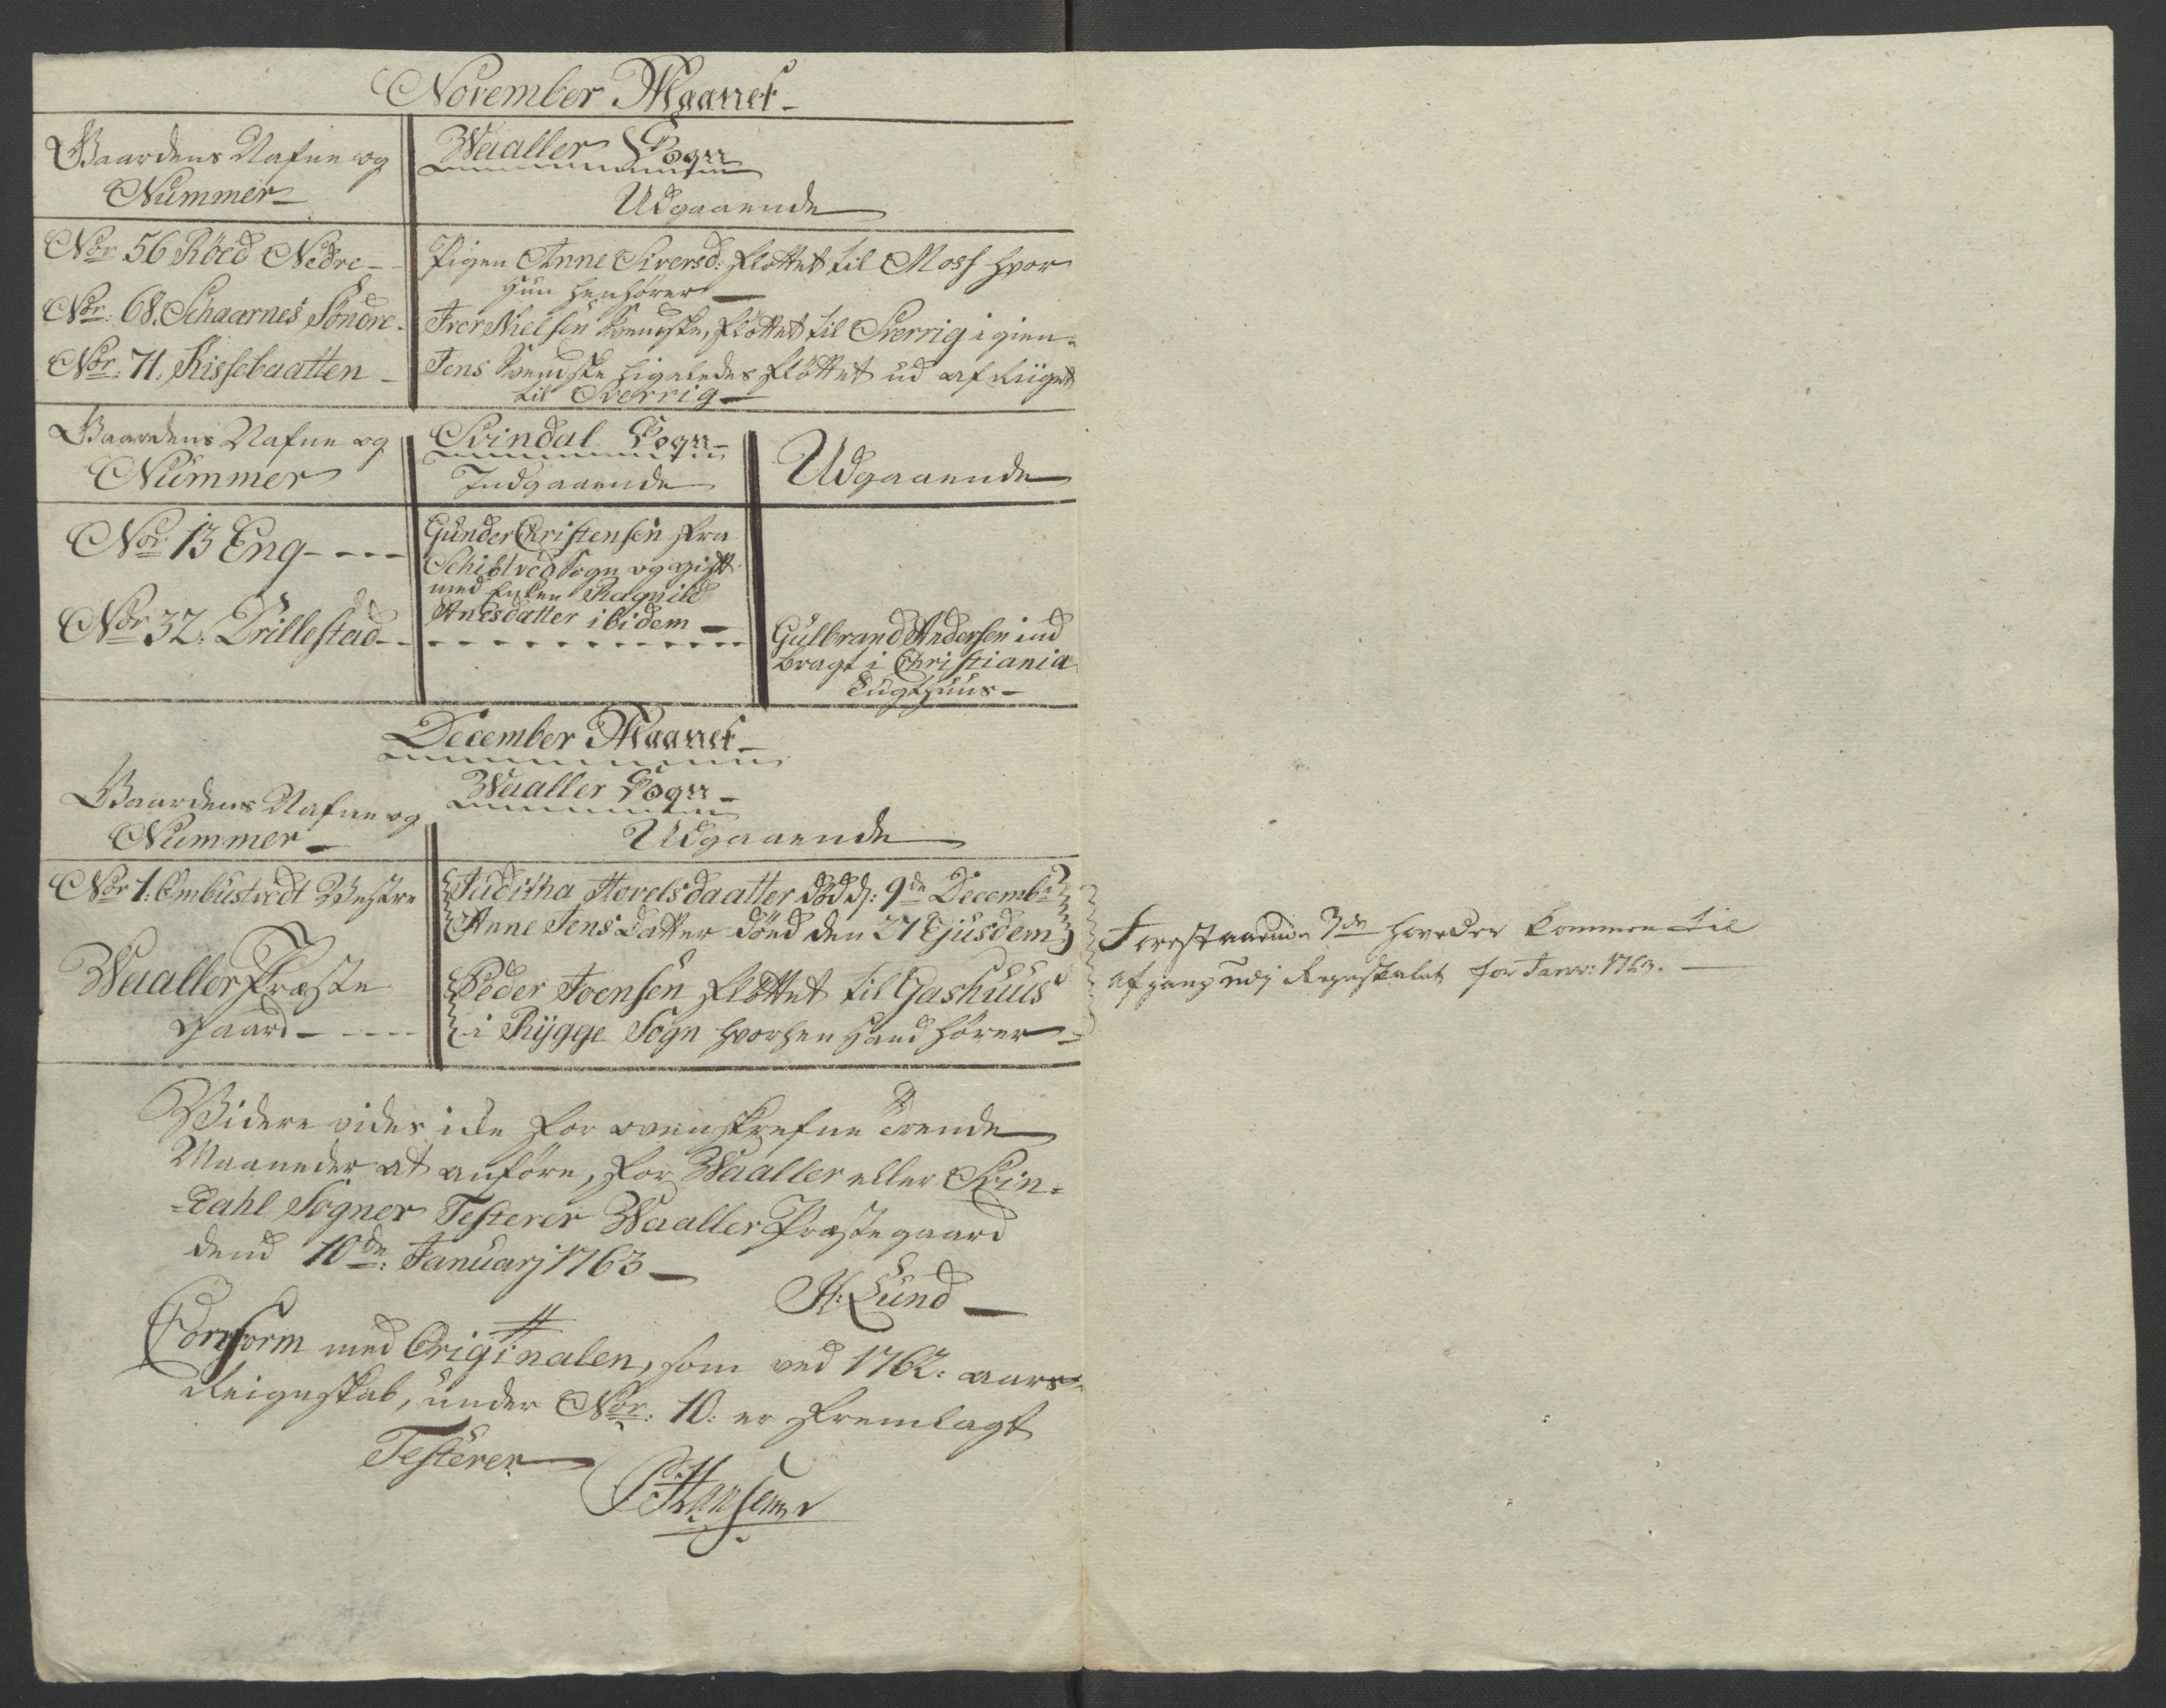 November Maanet
Gaardens Nafne og
Nummer
Waaller Sogn
Udgaaende
Nor 56 Röed Nedre
Pigen Anne Siversd: fløttet til Moss hvor
hun henhører
Nor: 68. Schaarnes Söndre
Iver Nielsen Svendske, fløttet til Sverrig igien
Nor: 71. Kissebaatten
Jens Svendske ligeledes fløttet ud af Riiget
til Sverrig
Gaardens Nafne og
Nummer
Svindal Sogn
Indgaaende
Udgaaende
Nor 13 Eng
Gunder Christensen fra
Schibtved Sogn og gift
med Enken Ragnild
Anesdatter ibidem
Nor 32. Drillestad
Gulbrand Andersen ind
bragt i Christiania
Tugthuus
December Maanet
Waaller Sogn
Gaardens Nafne og
Nummer
Udgaaende
Nor 1. Ombustvedt Westre
Juditha Hovelsdaatter död d: 9de Decembr
Anne Jens Datter döed den 27 Ejusdem
Waaller Præste
gaard
Peder Joensen fløttet til Gashuus
i Rygge Sogn hvorhen hand hører
Forestaaende 3de hoveder kommer til
afgang udj Regnskabet for Janv: 1763.
Videre vides icke for ovenskrefne trende
Maaneder at anföre, for Waaller eller Svin=
=dahl Sogner Testerer Waaller Præstegaard
dend 10de: Januarj 1763
H: Lund
Conform med Originalen, som ved 1762. aars
Reignskab, under Nor: 10. er fremlagt
Testerer
Hansen